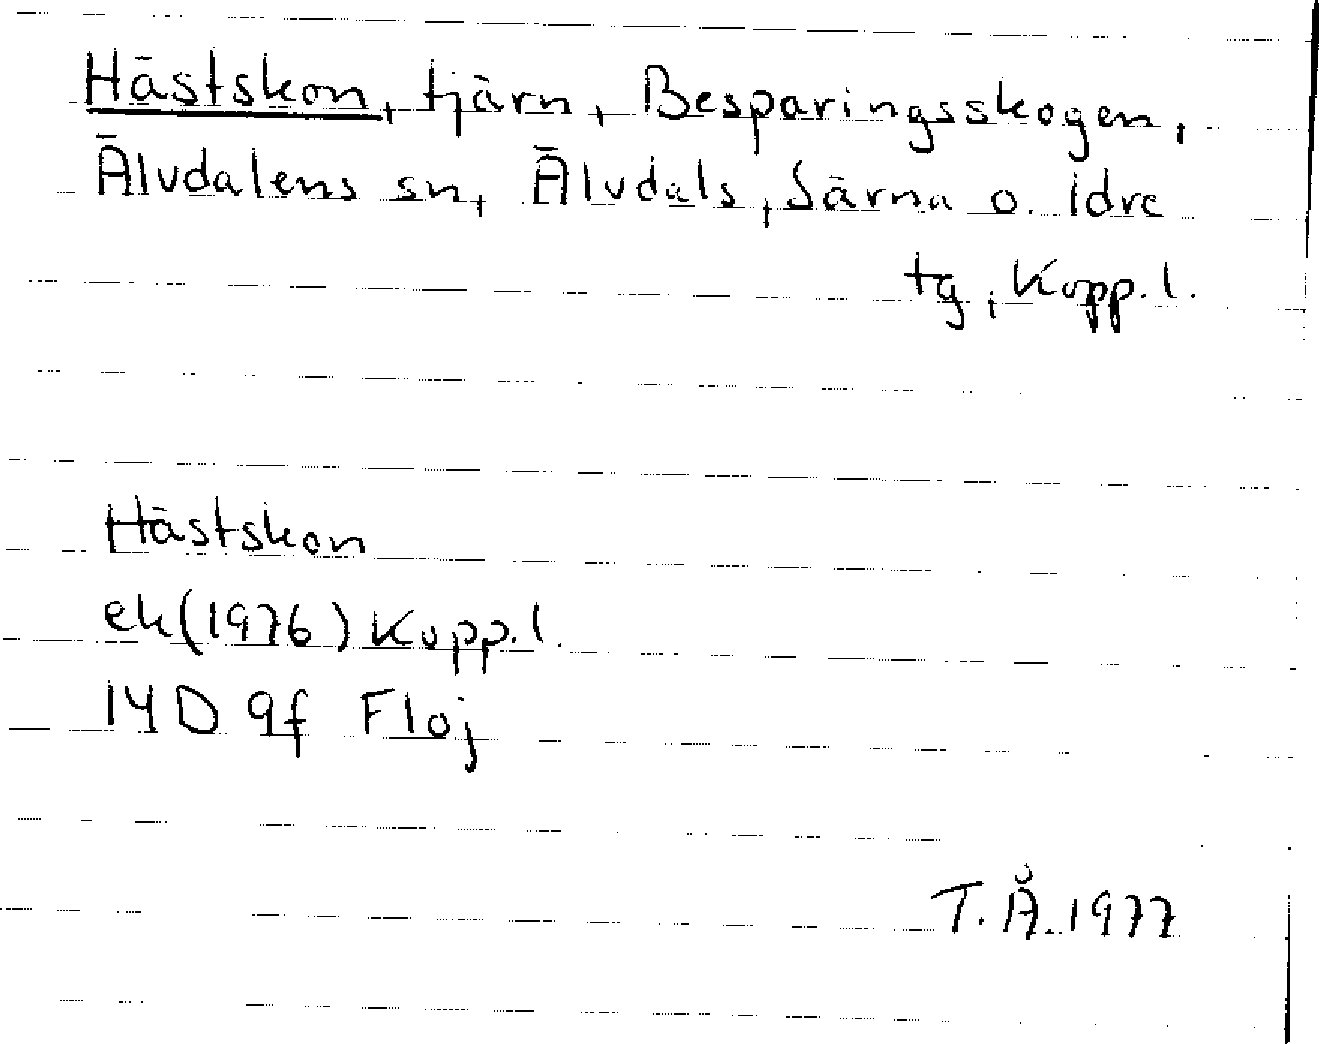 Hästskon, tjärn, Besparingsskogen,
Älvdalens sn, Älvdals, Särna o. Idre
tg, Kopp.l.
Hästskon
ek(1976) Kopp.l.
14D 9f Floj
T.Å.1977